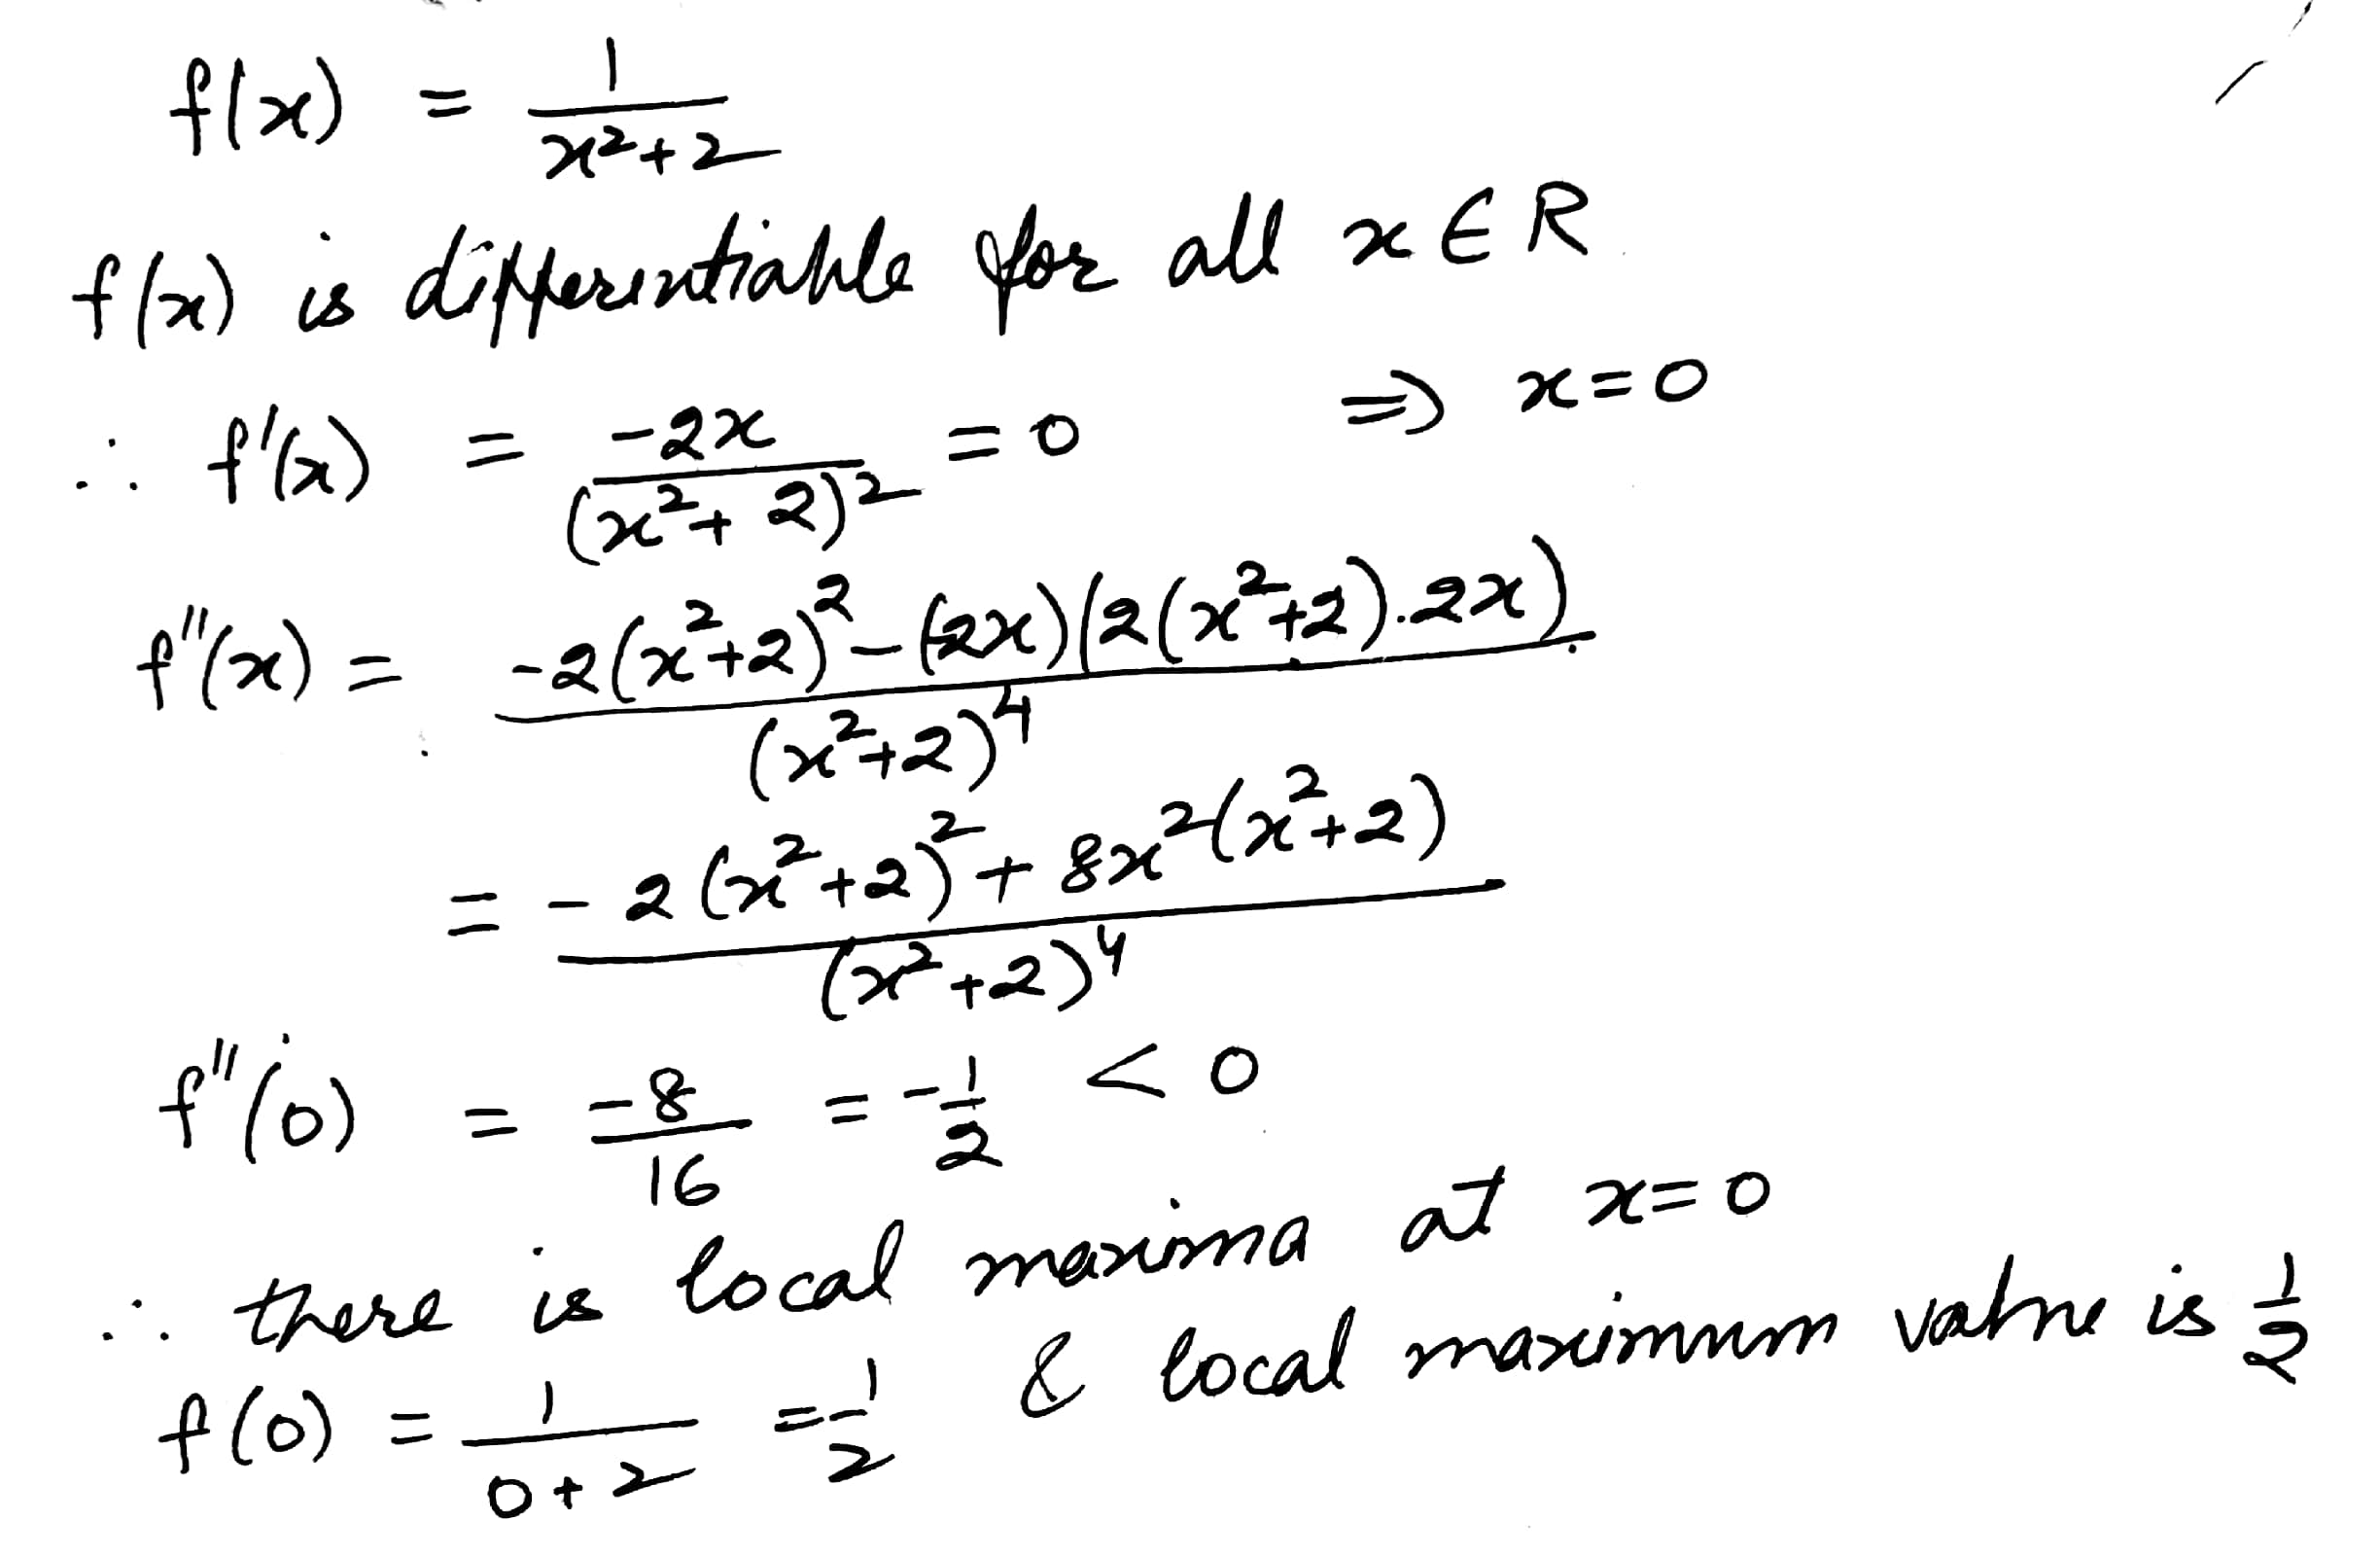 f(x) = 1/(x²+2)
f(x) is differentiable for all x ∈ R
∴ f'(x) = -2x/(x²+2)² = 0 ⇒ x=0
f''(x) = (-2(x²+2)² - (-2x)(2(x²+2).2x))/(x²+2)⁴
= (-2(x²+2)² + 8x²(x²+2))/(x²+2)⁴
f''(0) = -8/16 = -1/2 < 0
∴ there is local maxima at x=0
f(0) = 1/(0+2) = 1/2 & local maximum value is 1/2